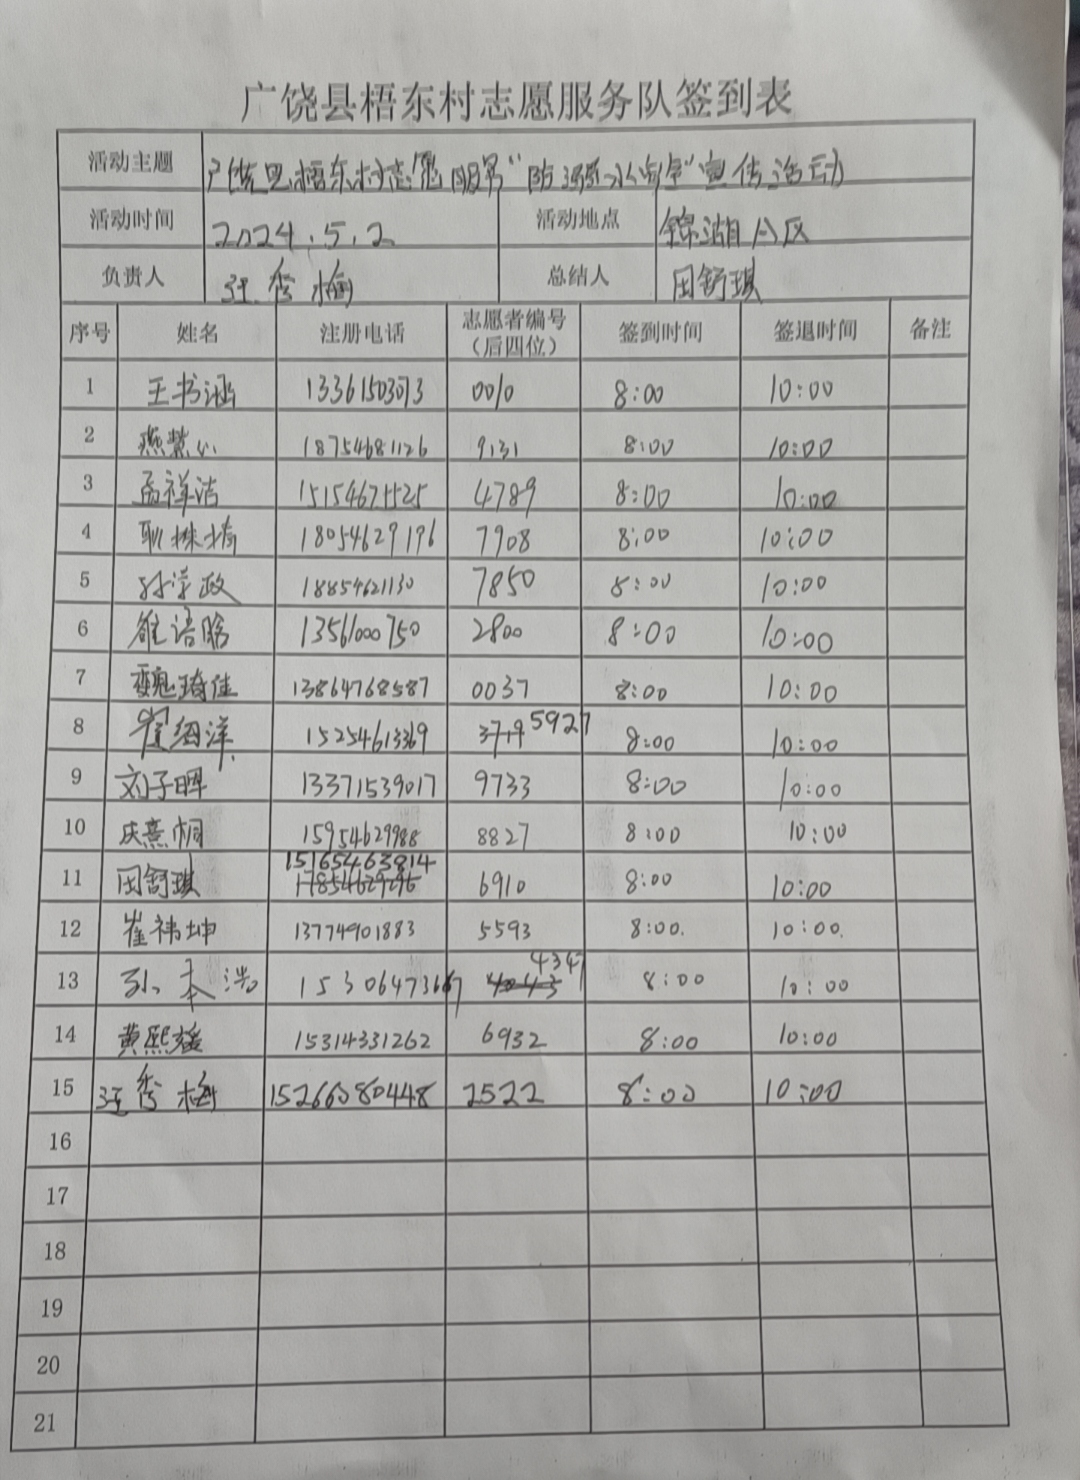 广饶县梧东村志愿服务队签到表
活动主题 广饶县梧东村志愿服务"防溺水安全"宣传活动
活动时间 2024.5.2 活动地点 锦湖公区
负责人 张秀梅 总结人 田舒琪
序号 姓名 注册电话 志愿者编号（后四位） 签到时间 签退时间 备注
1 王书涵 13361503073 0010 8:00 10:00
2 燕慧心 18754681126 9131 8:00 10:00
3 孟祥洁 15154671525 4789 8:00 10:00
4 耿姝楠 18054629196 7908 8:00 10:00
5 政 18854621130 7850 8:00 10:00
6 语晗 13561000750 2800 8:00 10:00
7 魏琦佳 13864768587 0037 8:00 10:00
8 崔洋 15254613369 5927 8:00 10:00
9 刘子晖 13371539017 9733 8:00 10:00
10 庆熹桐 15954629988 8827 8:00 10:00
11 田舒琪 15165463814 6910 8:00 10:00
12 崔祎坤 13774901883 5593 8:00. 10:00.
13 孙本浩 15306473667 4347 8:00 10:00
14 黄熙媛 15314331262 6932 8:00 10:00
15 张秀梅 15266080448 2522 8:00 10:00
16
17
18
19
20
21